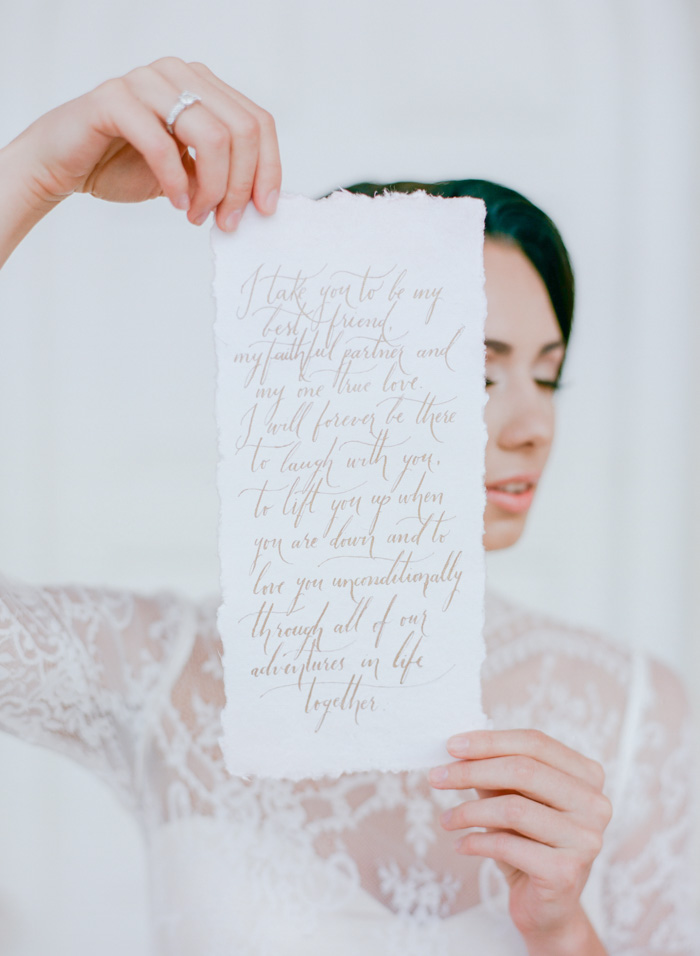 I take you to be my
best friend,
my faithful partner and
my one true love.
I will forever be there
to laugh with you,
to lift you up when
you are down and to
love you unconditionally
through all of our
adventures in life
together.